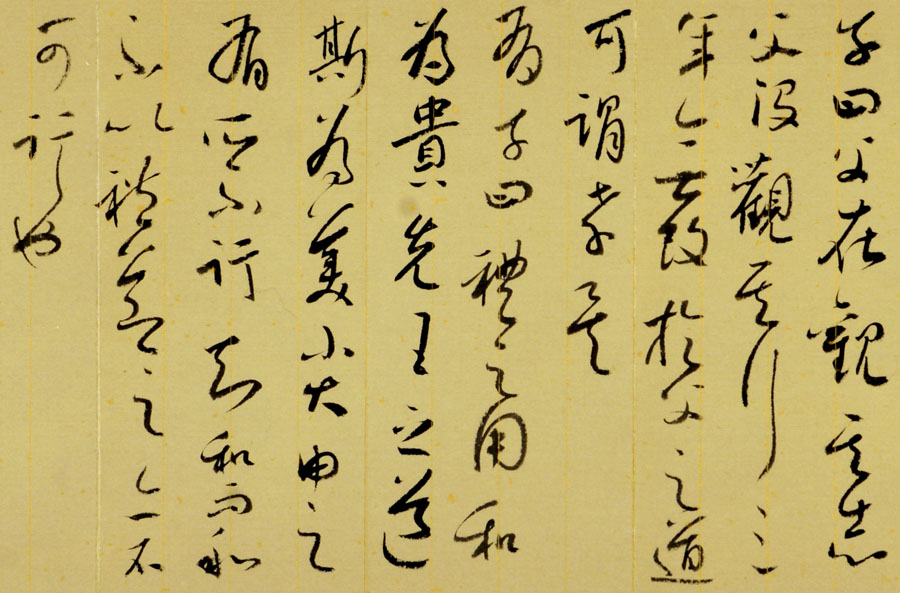 子曰父在觀其志
父沒觀其行三
年無改於父之道
可謂孝矣
有子曰禮之用和
為貴先王之道
斯為美小大由之
有所不行知和而和
不以禮節之亦不
可行也